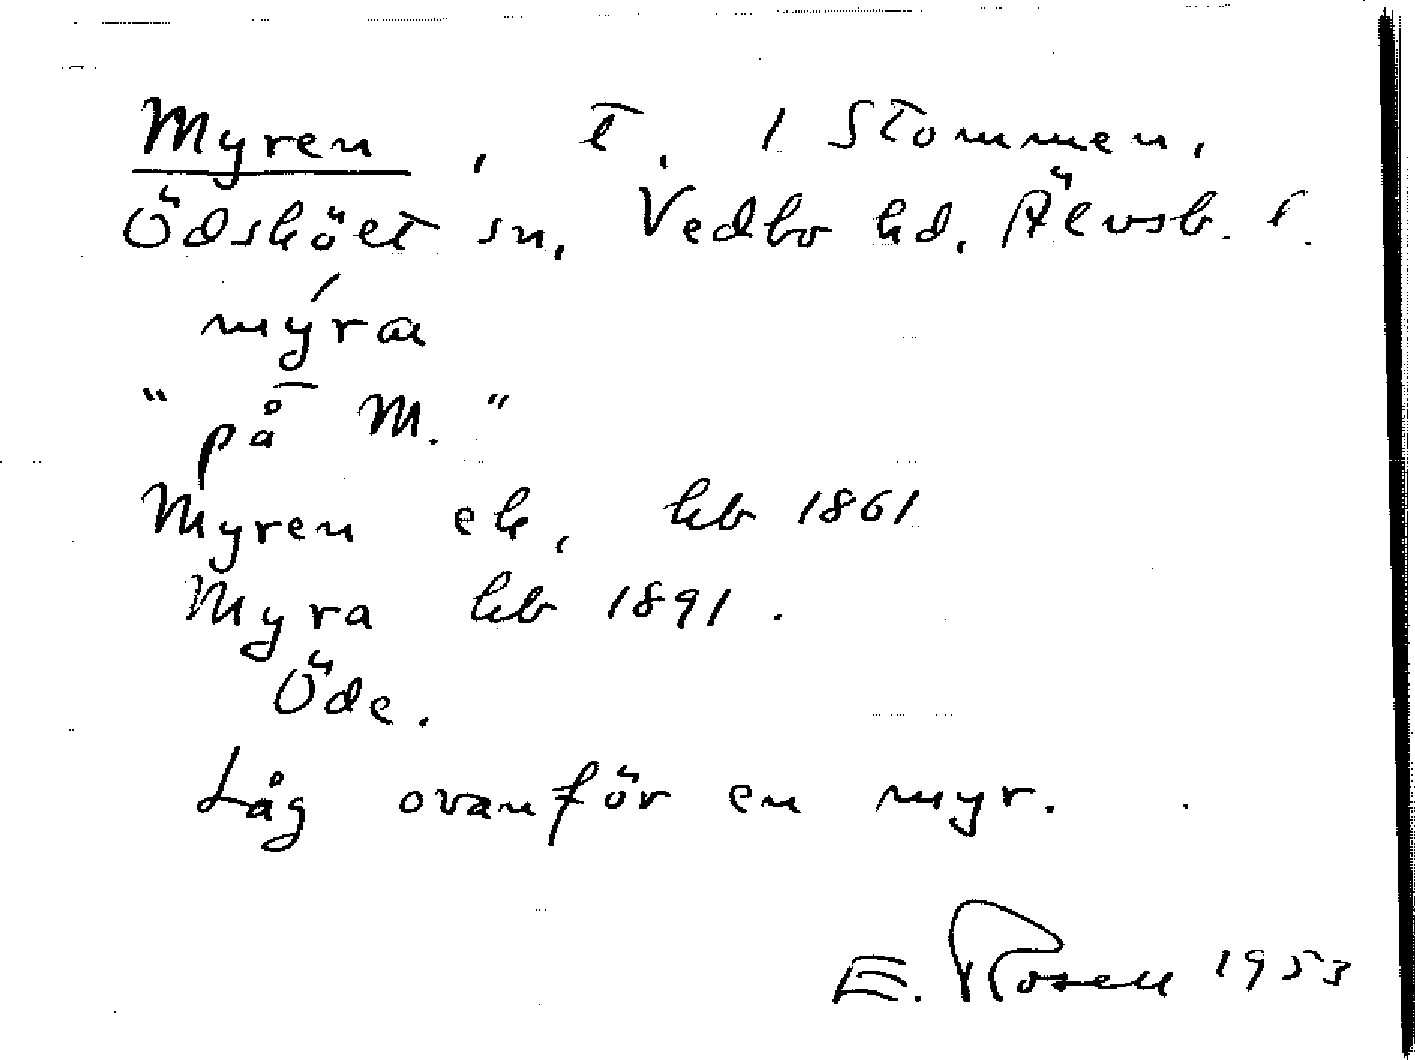 Myren, t. 1 Stommen,
Ödskölt sn, Vedbo hd, Älvsb. l.
mýra
"på M."
Myren eh, hb 1861
Myra hb 1891.
Öde.
Låg ovanför en myr.
E. Rosell 1953